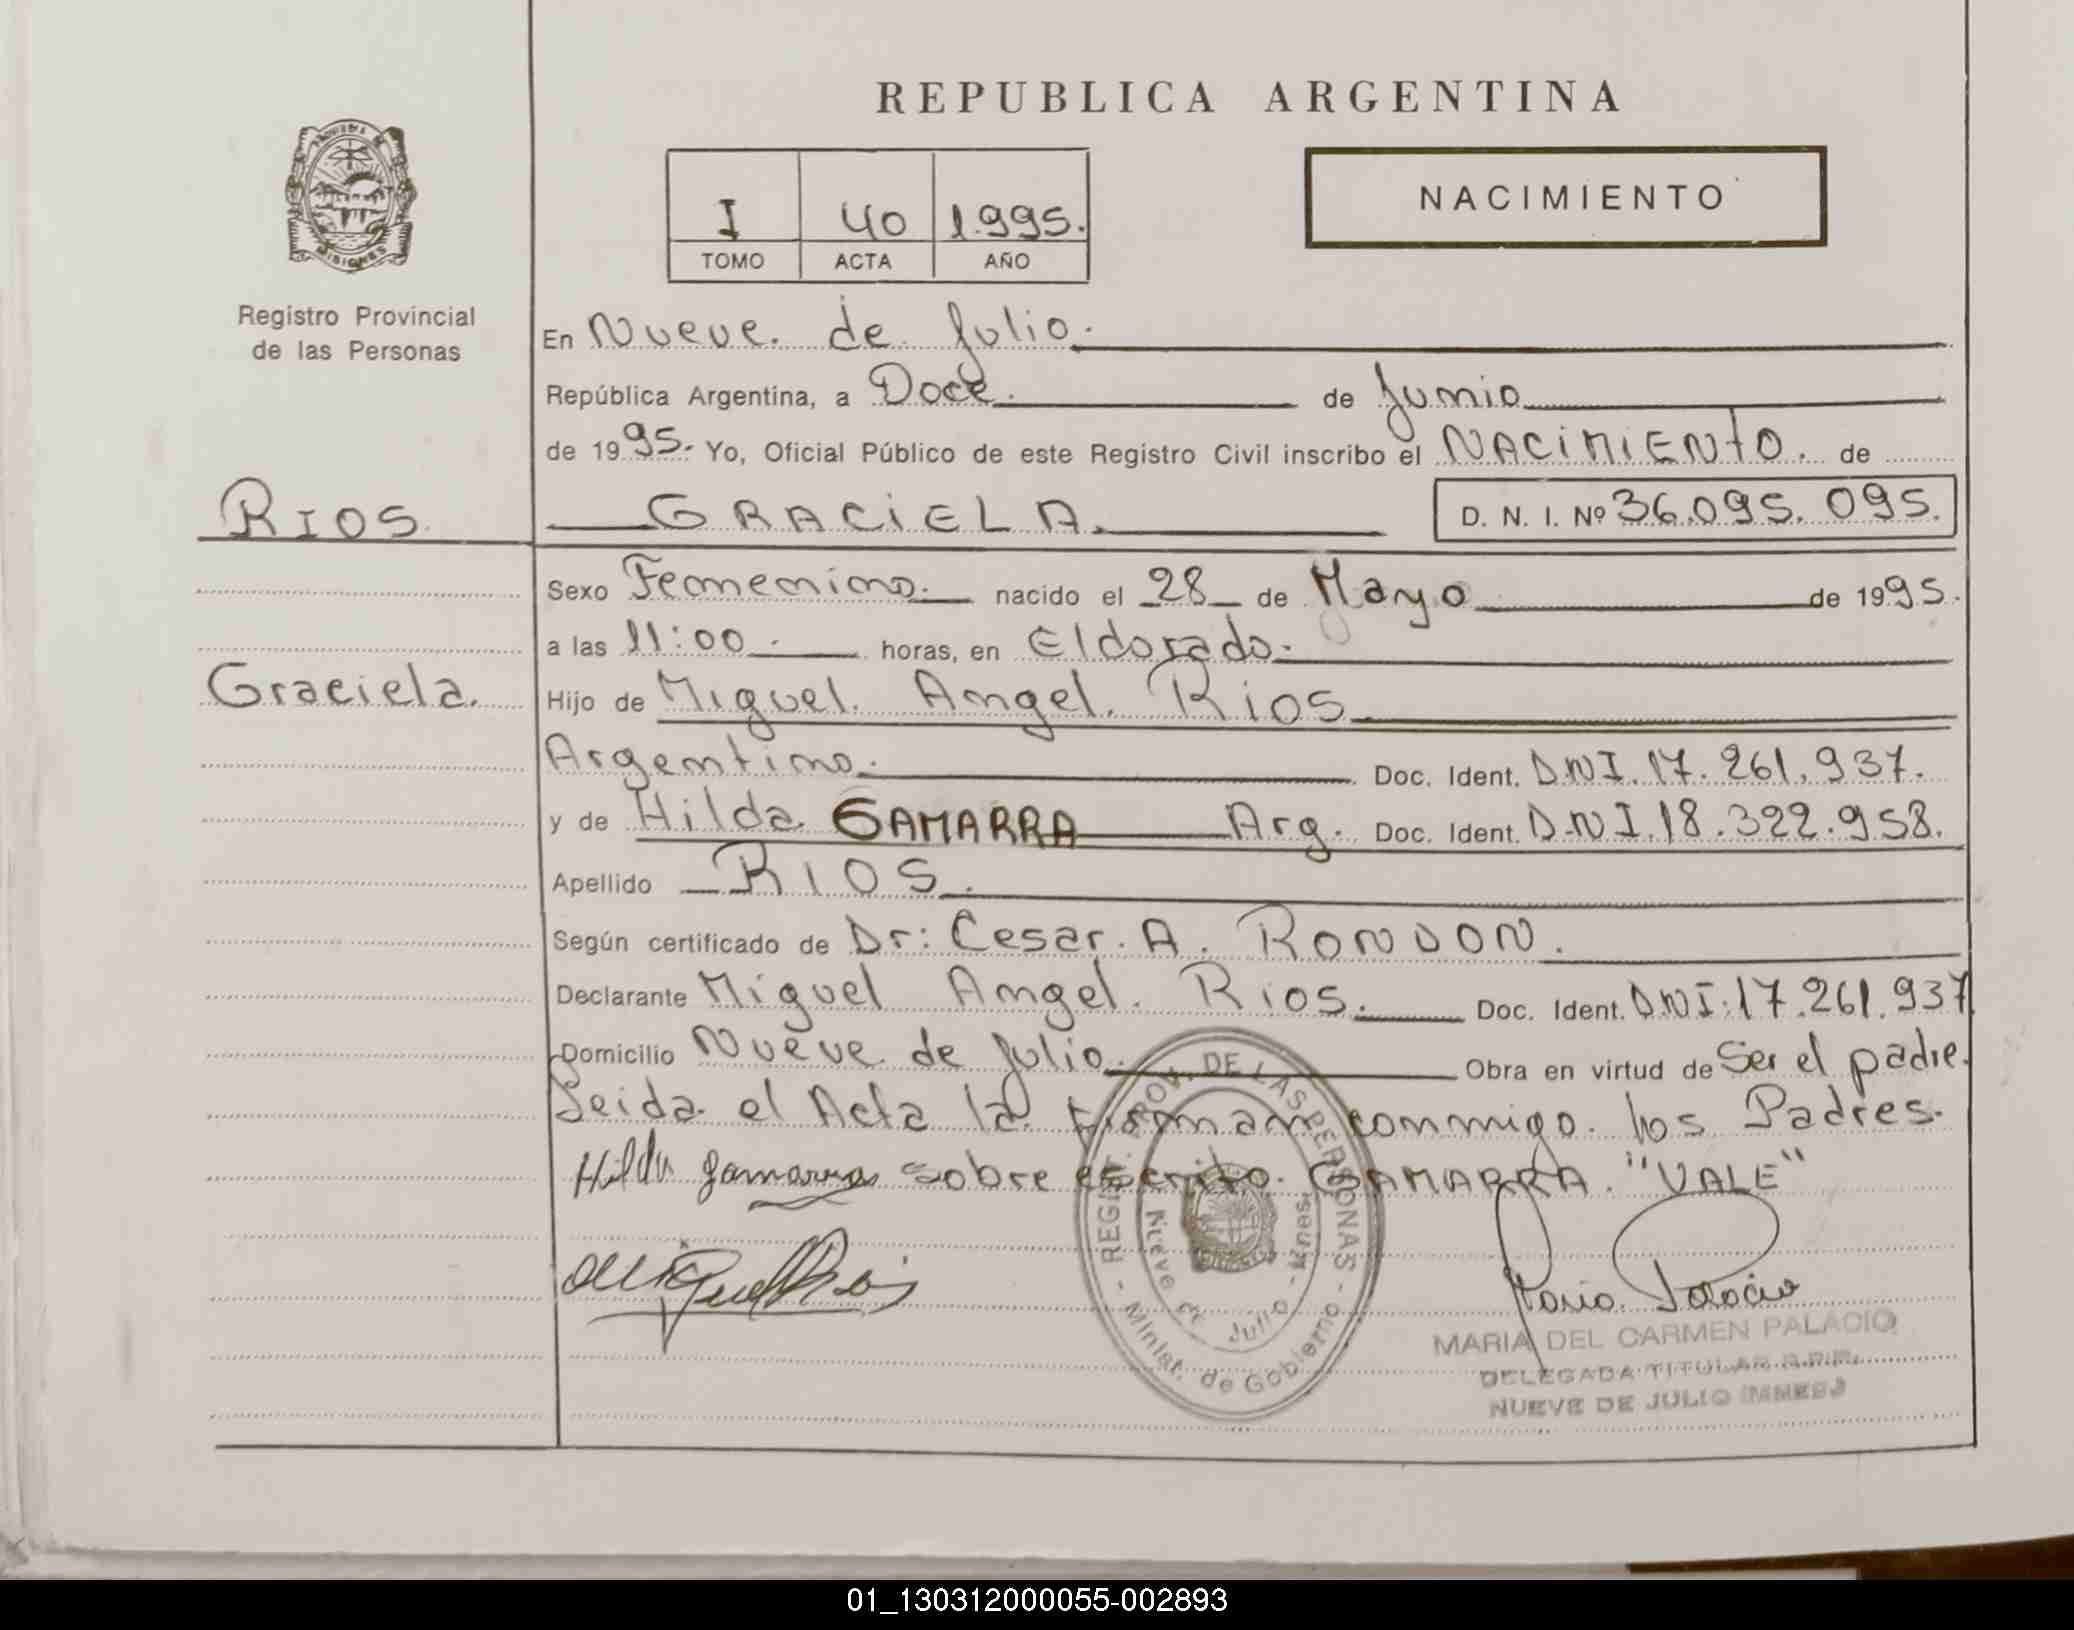 REPUBLICA ARGENTINA
PROVINCIA
MISIONES
Registro Provincial
de las Personas
I 40 1.995.
TOMO ACTA AÑO
NACIMIENTO
En Nueve. de Julio.
República Argentina, a Doce. de Junio
de 19 95. Yo, Oficial Público de este Registro Civil inscribo el NACIMIENTO. de
RIOS.
GRACIELA. D. N. I. Nº 36.095.095.
Sexo Femenino. nacido el 28 de Mayo de 1995.
a las 11:00. horas, en Eldorado.
Graciela.
Hijo de Miguel. Angel. Rios
Argentino. Doc. Ident. D.N.I. 17.261.937.
y de Hilda GAMARRA Arg. Doc. Ident. D.N.I. 18.322.958.
Apellido RIOS.
Según certificado de Dr: Cesar. A. RONDON.
Declarante Miguel Angel. Rios. Doc. Ident. D.N.I: 17.261.937
Domicilio Nueve de Julio. Obra en virtud de Ser el padre.
Leida el Acta la firman conmigo. los Padres.
Hilda gamarra sobre escrito. GAMARRA. "VALE"
REGIS. PROV. DE LAS PERSONAS
Nueve de Julio - Mnes.
- Minist. de Gobierno -
Miguel Rios
Maria Palacio
MARIA DEL CARMEN PALACIO
DELEGADA TITULAR R.P.P.
NUEVE DE JULIO (MNES.)
01_130312000055-002893